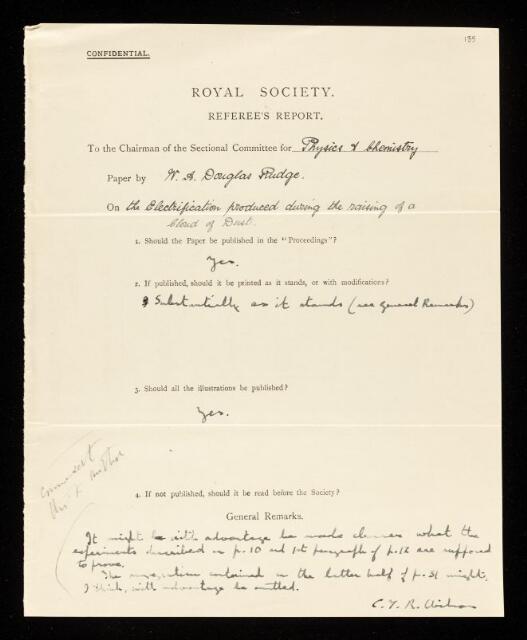 135
CONFIDENTIAL.
ROYAL SOCIETY.
REFEREE'S REPORT.
To the Chairman of the Sectional Committee for Physics & Chemistry
Paper by W. A. Douglas Rudge.
On the Electrification produced during the raising of a
Cloud of Dust.
1. Should the Paper be published in the "Proceedings"?
Yes.
2. If published, should it be printed as it stands, or with modifications?
Substantially as it stands (see general Remarks)
3. Should all the illustrations be published?
Yes.
Communicate
this to Author
4. If not published, should it be read before the Society?
General Remarks.
It might with advantage be made clearer what the
experiments described on p. 10 and 1st paragraph of p. 12 are supposed
to prove.
The suggestion contained in the latter half of p. 31 might,
I think, with advantage be omitted.
C. T. R. Wilson